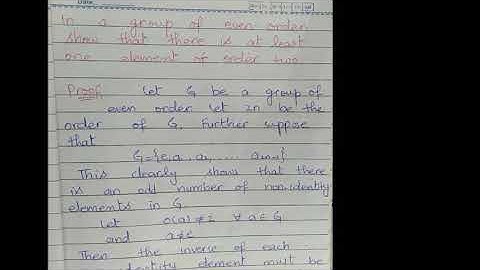 Date
In a group of even order
show that there is at least
one element of order two
Proof Let G be a group of
even order. Let 2n be the
order of G. Further suppose
that
G={e,a, a₂, .... a₂ₙ₋₁}
This clearly show that there
is an odd number of non-identity
elements in G.
Let o(a) ≠ 2 ∀ a ∈ G
and a≠e
Then the inverse of each
identity element must be